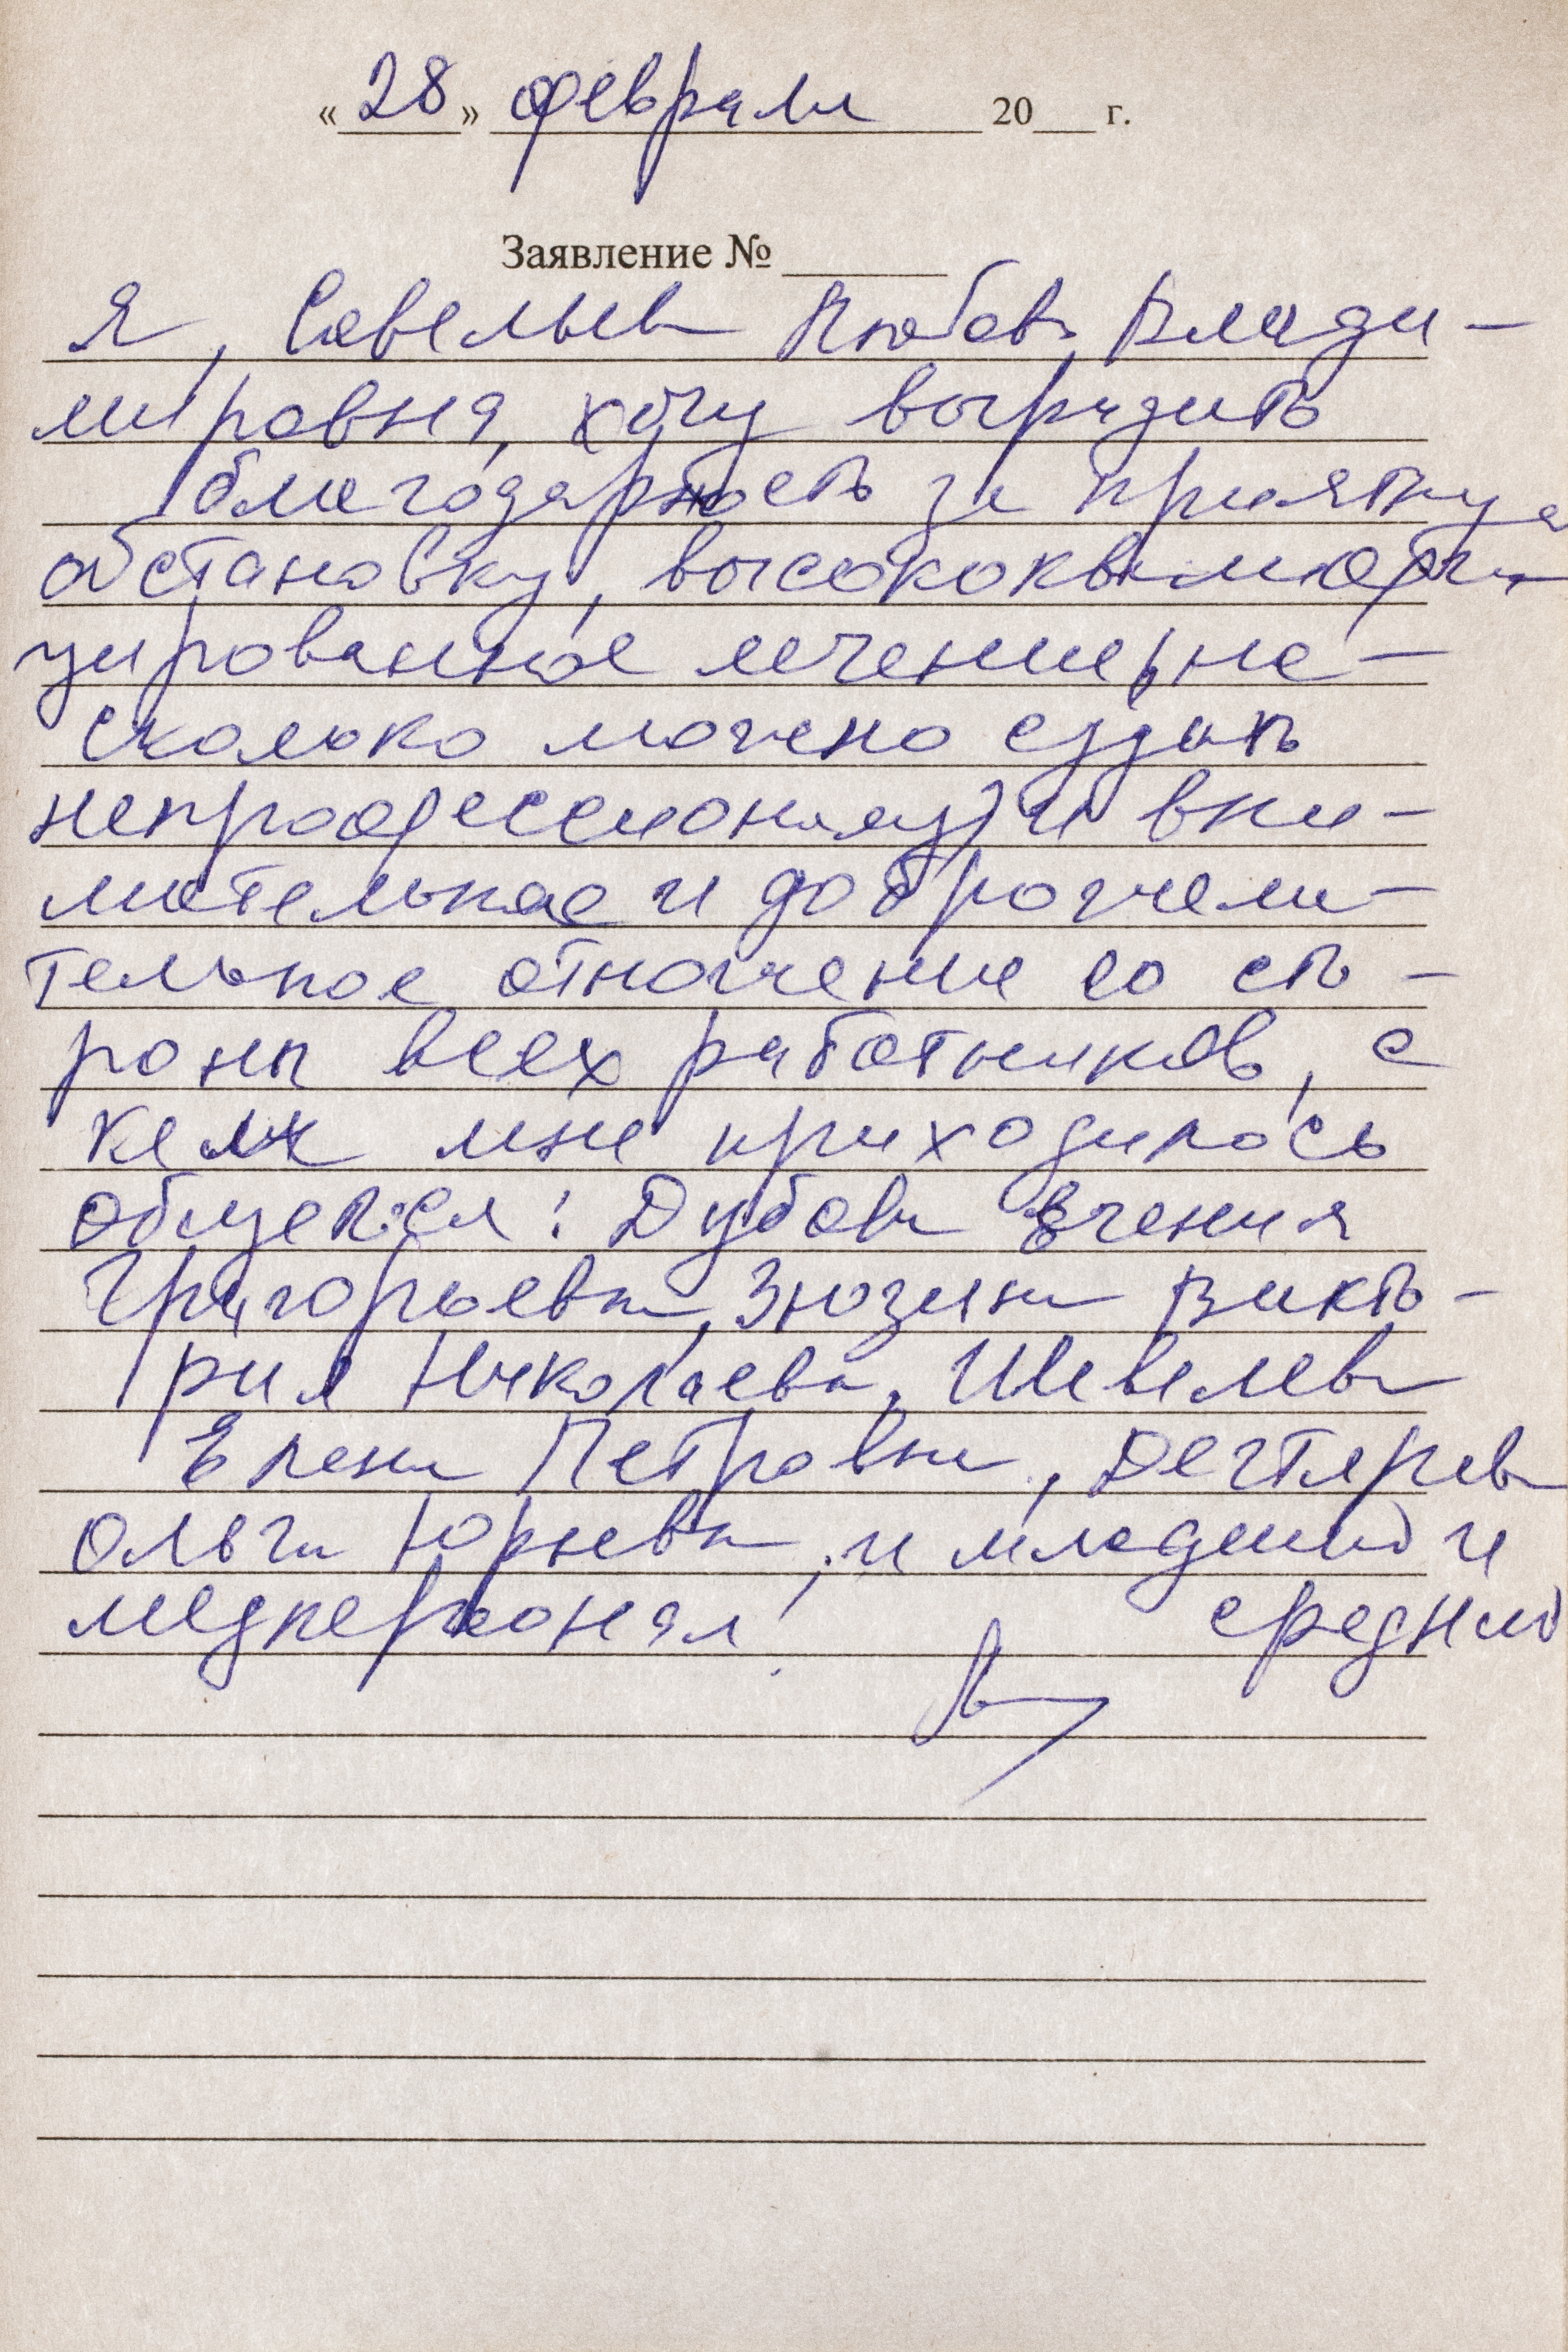 «28» февраля 20___ г.
Заявление № ______
Я, Савельева Любовь Влади-
мировна, хочу выразить
благодарность за приятную
обстановку, высококвалифи-
цированное лечение (на-
сколько можно судить
непрофессионалу) и вни-
мательное и доброжела-
тельное отношение со сто-
роны всех работников, с
кем мне приходилось
общаться: Дубова Евгения
Григорьевна, Зюзина Викто-
рия Николаевна, Шевелева
Елена Петровна, Дегтярева
Ольга Юрьевна, и младший и
медперсонал! средний